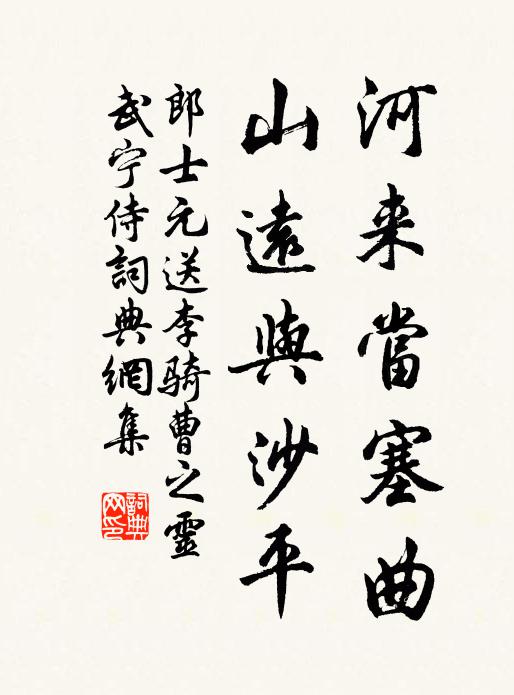 河来當塞曲
山遠與沙平
郎士元送李骑曹之靈
武宁侍詞典網集
詞典網印